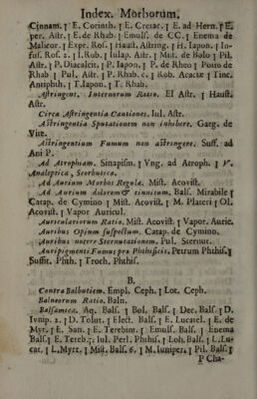 Index. Morborum.
Cinnam. ſ E. Corinth. ſ E. Cretac. ſ E. ad Hern. ſ E.
per. Aſtr. ſ E. de Rhab. ſ Emulſ. de CC. ſ Enema de
Malicor. ſ Expr. Roſ. ſ Hauſt. Aſtring. ſ H. Iapon. ſ In-
fuſ. Roſ. 2. ſ I. Rob. ſ Iulap. Aſtr. ſ Mist. de Bolo ſ Pil.
Aſtr. ſ P. Diacalcit. ſ P. Iapon. ſ P. de Rheo ſ Potio de
Rhab ſ Pul. Aſtr. ſ P. Rhab. c. ſ Rob. Acaciæ ſ Tinc.
Antiphth. ſ T. Iapon. ſ T. Rhab.
Aſtringent. Internorum Ratio. El Aſtr. ſ Hauſt.
Aſtr.
Circa Aſtringentia Cautiones. Iul. Aſtr.
Aſtringentia Sputationem non inhibere. Garg. de
Vite.
Aſtringentium Fumum non aſtringere. Suff. ad
Ani P.
Ad Atropham. Sinapiſm. ſ Vng. ad Atroph. ſ V.
Analeptica, Scorbutica.
Ad Aurium Morbos Regulæ. Miſt. Acoviſt.
Ad Aurium dolorem & tinnitum. Balſ. Mirabile ſ
Catap. de Cymino ſ Miſt. Acoviſt. ſ M. Plateri ſ Ol.
Acoviſt. ſ Vapor Auricul.
Auriculariorum Ratio. Miſt. Acoviſt. ſ Vapor. Auric.
Auribus Opium ſuſpectum. Catap. de Cymino.
Auribus nocere Sternutationem. Pul. Sternut.
Auripigmenti Fumus pro Phthiſicis. Petrum Phthiſ. ſ
Suffit. Phth. ſ Troch. Phthiſ.
B.
Contra Balbutiem. Empl. Ceph. ſ Lot. Ceph.
Balneorum Ratio. Baln.
Balſamica. Aq. Balſ. ſ Bol. Balſ. ſ Dec. Balſ ſ D.
Iunip. 2. ſ D. Tolut. ſ Elect. Balſ. ſ E. Lucatel. ſ E. de
Myr. ſ E. San. ſ E. Terebin. ſ Emulſ. Balſ. ſ Enema
Balſ. ſ E. Tereb. ſ Iul. Perl. Phthiſ. ſ Loh. Balſ. ſ L. Lu-
cat. ſ L. Myrr. ſ Miſt. Balſ. 6. ſ M. Iuniper. ſ Pil. Balſ. ſ
P Cha-